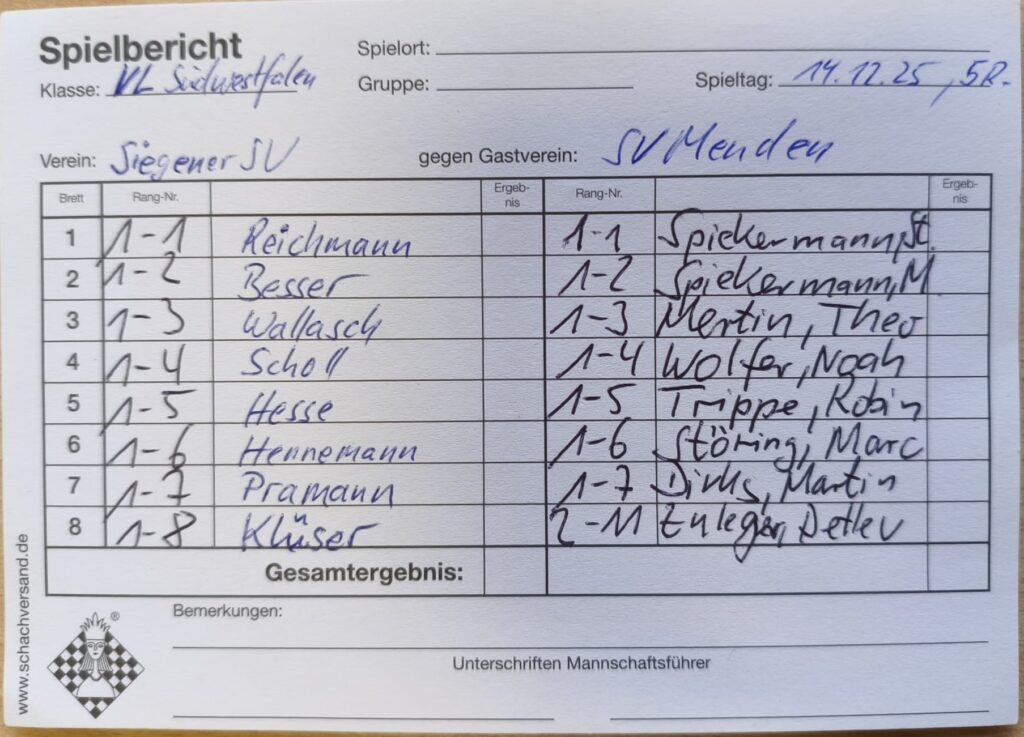 Spielbericht
Spielort:
Klasse: VL Südwestfalen
Gruppe:
Spieltag: 14.12.25, 5R.
Verein: Siegener SV gegen Gastverein: SV Menden
Brett Rang-Nr. Ergeb-nis Rang-Nr. Ergeb-nis
1 1-1 Reichmann 1-1 Spiekermann, St.
2 1-2 Besser 1-2 Spiekermann, M.
3 1-3 Wallasch 1-3 Mertin, Theo
4 1-4 Scholl 1-4 Wolfer, Noah
5 1-5 Hesse 1-5 Trippe, Robin
6 1-6 Hennemann 1-6 Störing, Marc
7 1-7 Pramann 1-7 Dirks, Martin
8 1-8 Klüser 2-11 Euleger, Detlev
Gesamtergebnis:
Bemerkungen:
Unterschriften Mannschaftsführer
www.schachversand.de
®